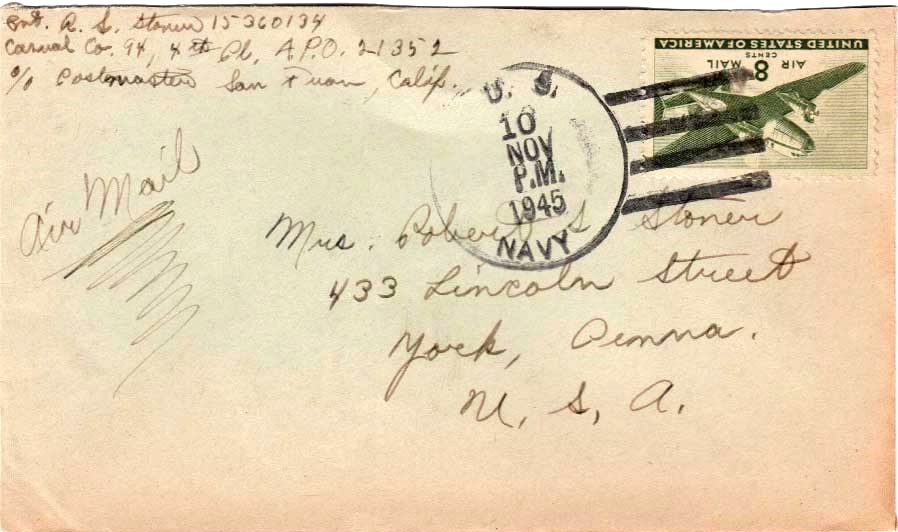 Pvt. R. S. Stoner 15360134
Casual Co. 94, 4th Pl., A.P.O. 21352
c/o Postmaster San Fran, Calif.
UNITED STATES OF AMERICA
8 CENTS AIR MAIL
U. S.
10
NOV
P.M.
1945
NAVY
Air Mail
Mrs. Robert S. Stoner
433 Lincoln Street
York, Penna.
U. S. A.